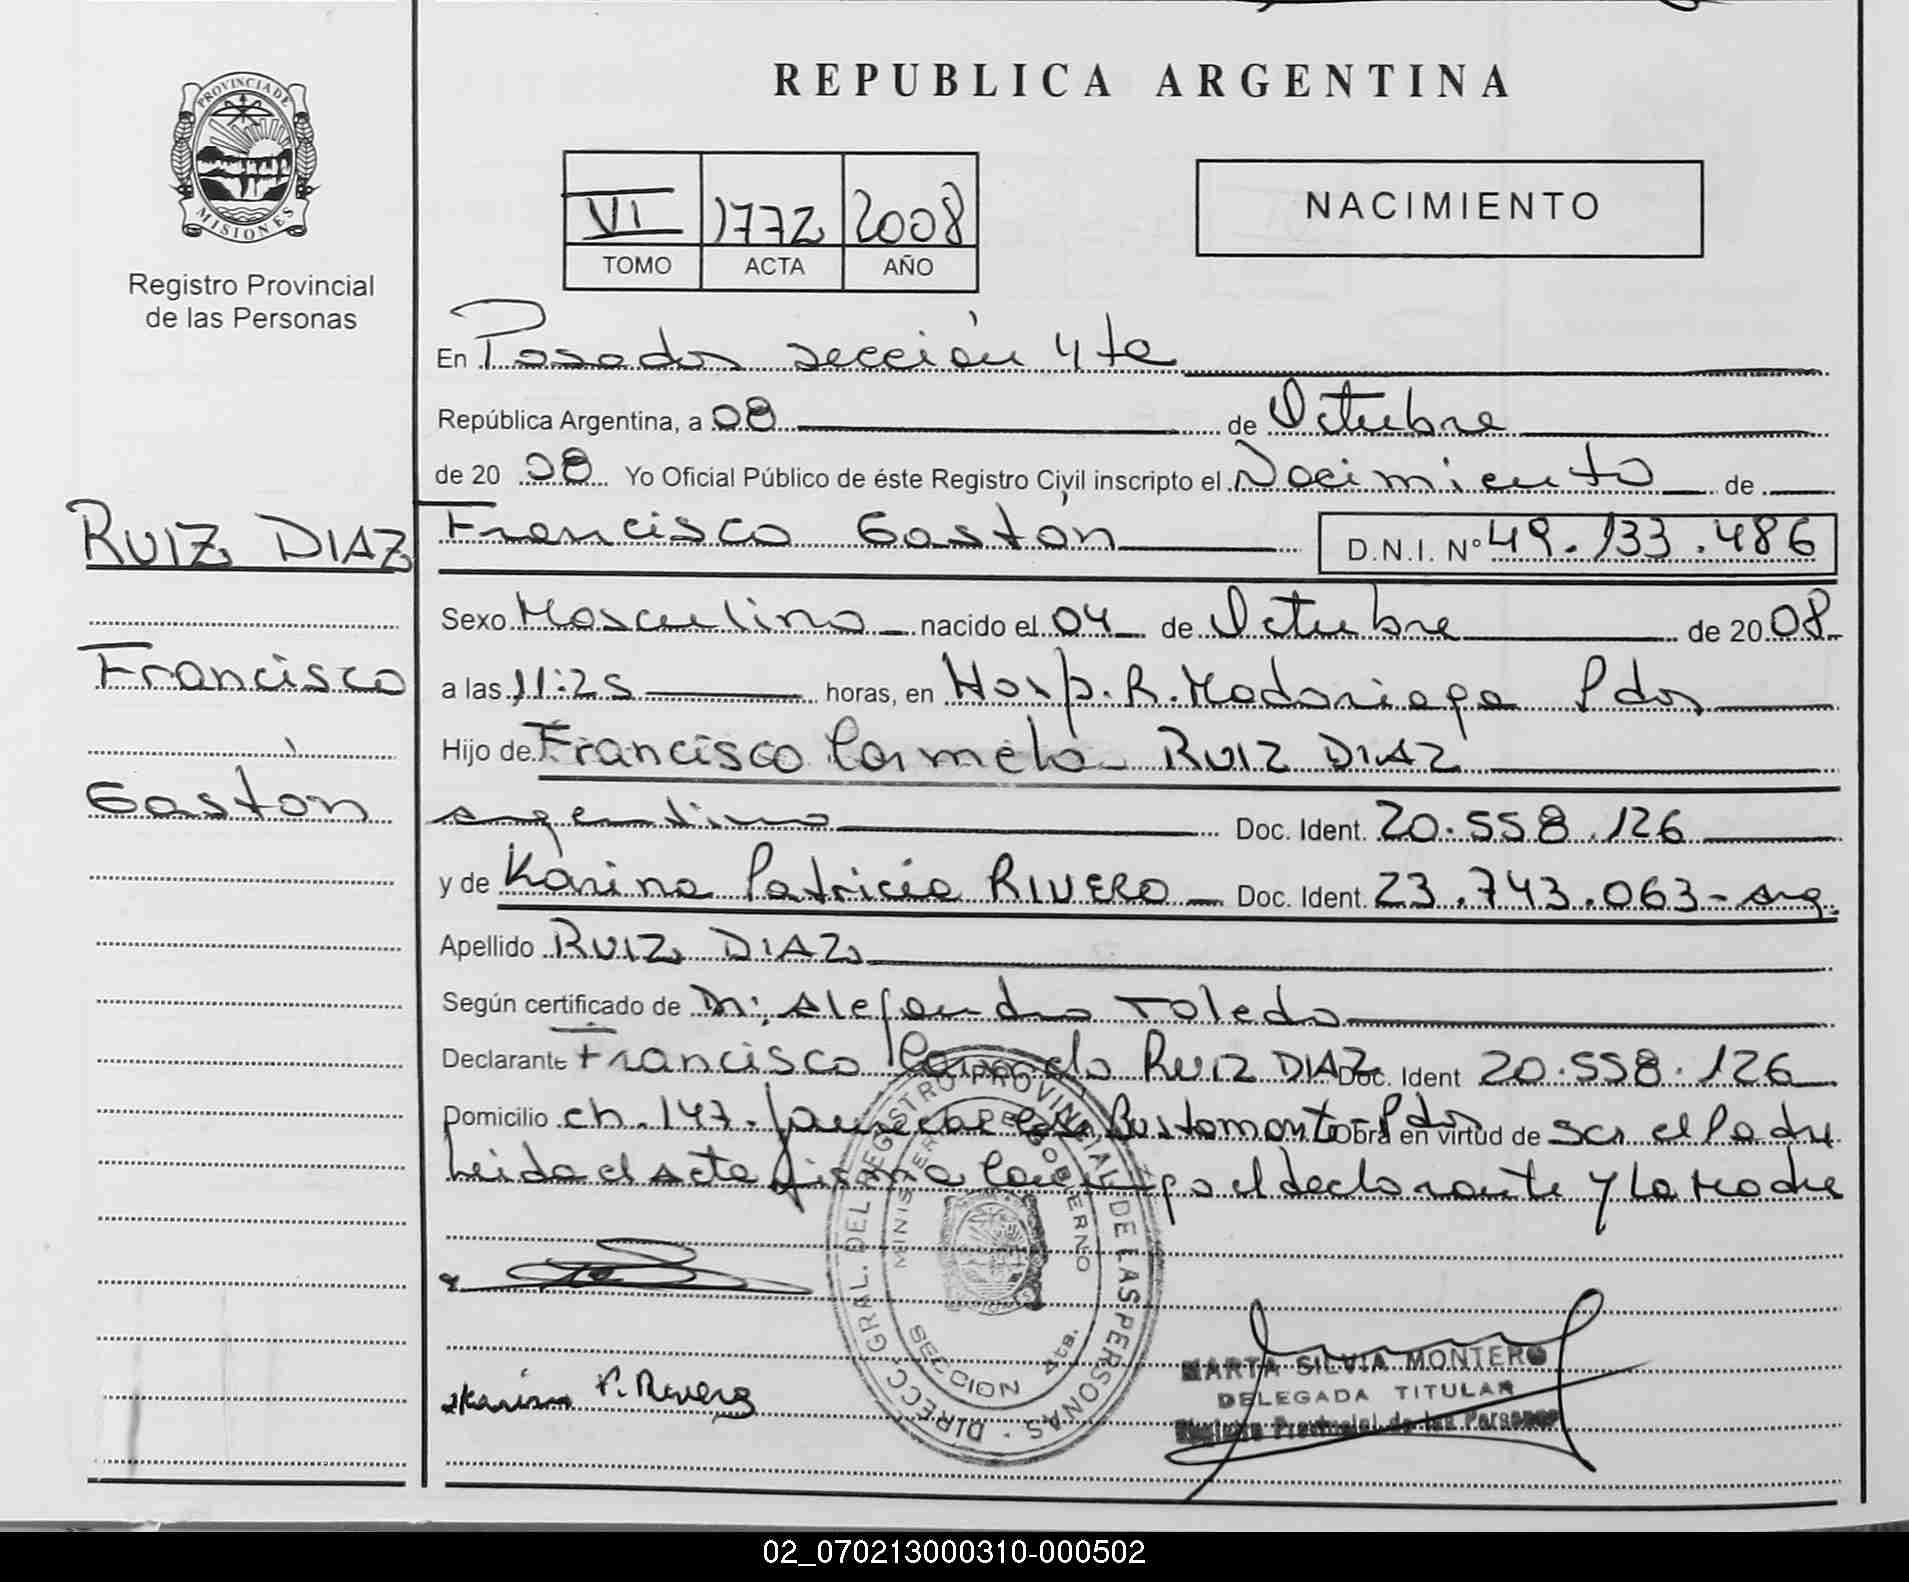 PROVINCIA DE
MISIONES
Registro Provincial
de las Personas
RUIZ DIAZ
Francisco
Gastón
REPUBLICA ARGENTINA
VI 1772 2008
TOMO ACTA AÑO
NACIMIENTO
En Posadas sección 4ta
República Argentina, a 08 de Octubre
de 20 08 Yo Oficial Público de éste Registro Civil inscripto el Nacimiento de
Francisco Gastón D.N.I. Nº 49.133.486
Sexo Masculino nacido el 04 de Octubre de 20 08
a las 11:25 horas, en Hosp. R. Madariaga Pdas
Hijo de Francisco Carmelo RUIZ DIAZ
argentino Doc. Ident. 20.558.126
y de Karina Patricia RIVERO Doc. Ident. 23.743.063 - arg.
Apellido RUIZ DIAZ
Según certificado de Dr: Alejandro Toledo
Declarante Francisco Carmelo RUIZ DIAZ Doc. Ident 20.558.126
Domicilio ch. 147. Bustamante Pdas obra en virtud de ser el Padre
Leida el acta firma conmigo el declarante y la Madre
DIRECC. GRAL. DEL REGISTRO PROVINCIAL DE LAS PERSONAS
MINISTERIO DE GOBIERNO
SECCION 4ta.
Karina P. Rivero
MARTA SILVIA MONTERO
DELEGADA TITULAR
Registro Provincial de las Personas
02_070213000310-000502